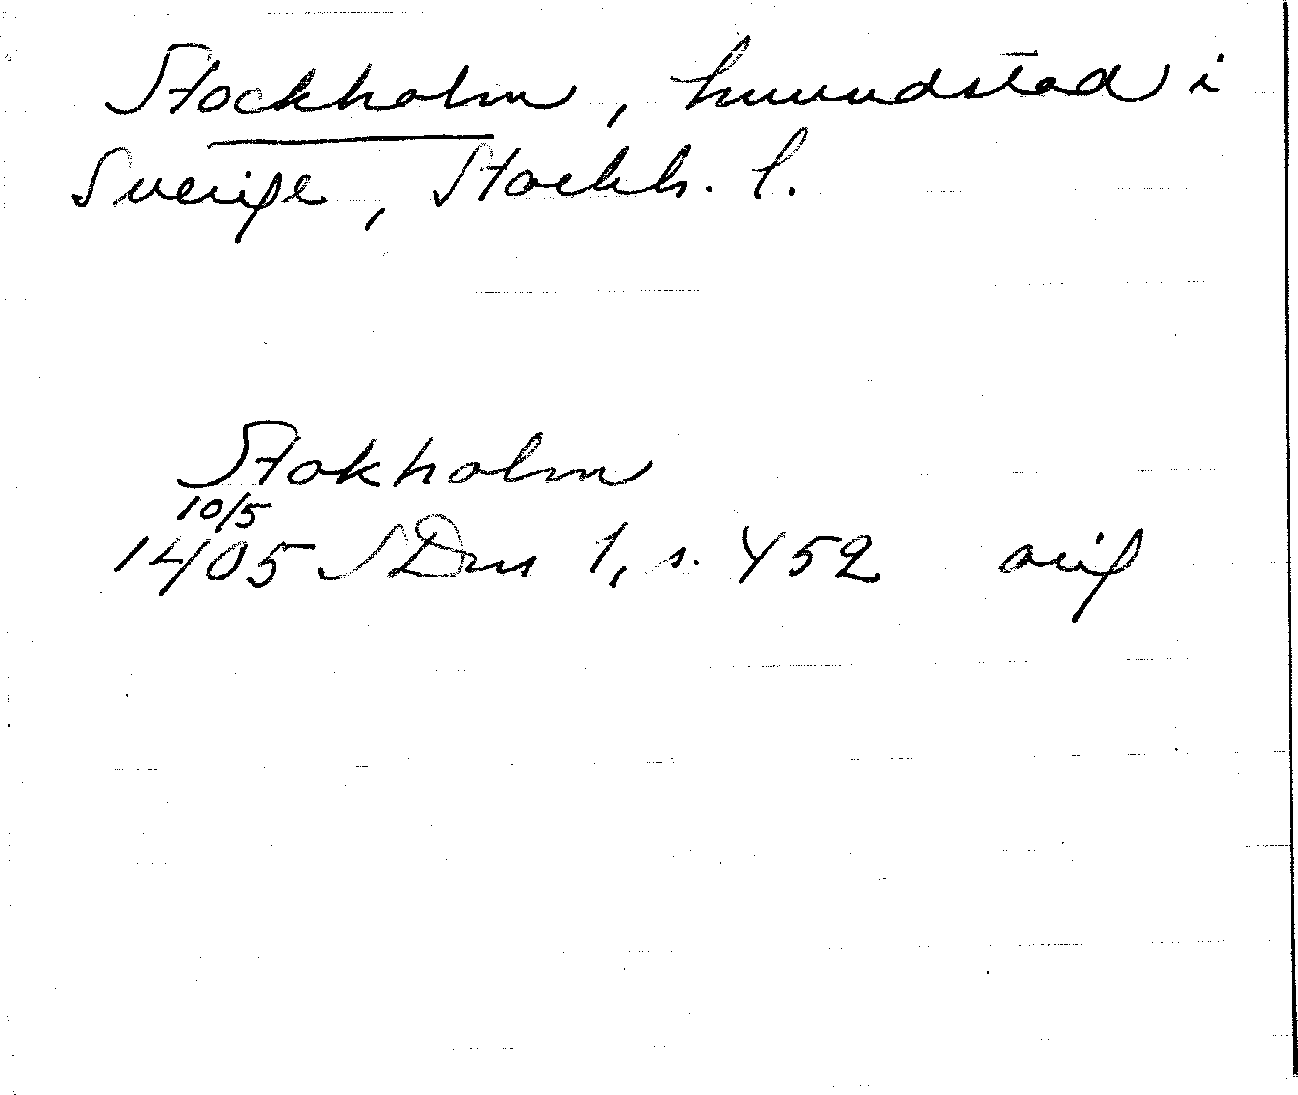 Stockholm, huvudstad i
Sverige, Stockh. l.
Stokholm
10/5
1405 SDns 1, s. 452 orig